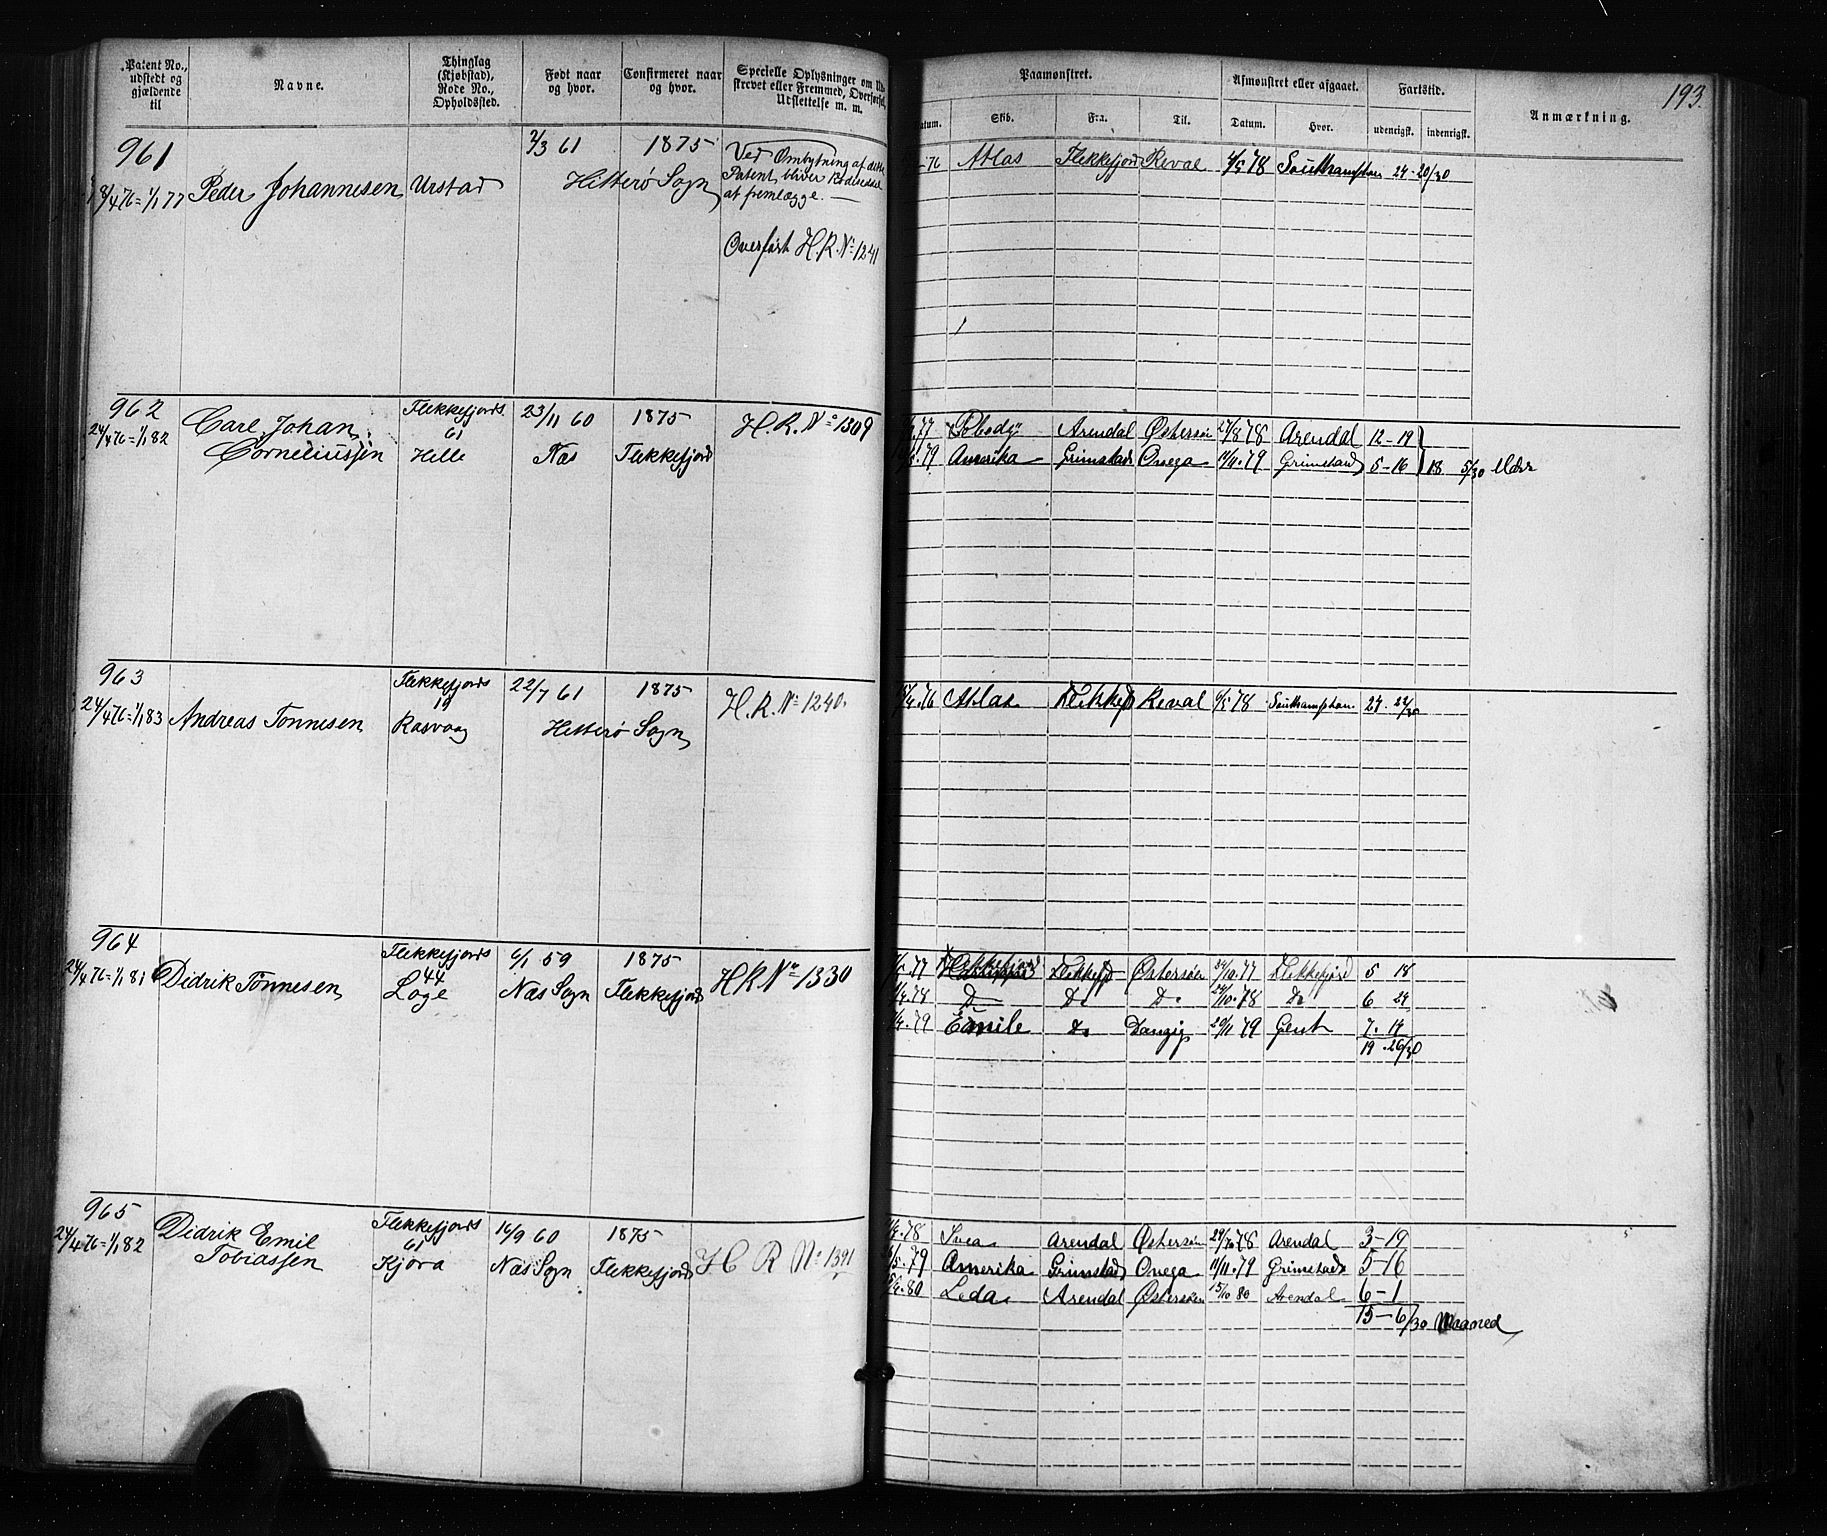 Patent No., udstedt og gjældende til
Navne.
Thinglag (Kjøbstad), Rode No., Opholdssted.
Født naar og hvor.
Confirmeret naar og hvor.
Specielle Oplysninger om
Udslettelse m. m.
Paamønstret.
Afmønstret eller afgaaet.
Fartstid.
Anmærkning.
193.
Skib.
Fra.
Til.
Datum.
Hvor.
udenrigsk.
indenrigsk.
961
18/4 76 = 1/1 77
Peder Johannesen
Urstad
2/3 61
1875
Hitterø Sogn
Ved Ombytning af dette
Patent, bliver
at fremlægge. —
Overført H. R. No 1241
76 Atlas Flekkefjord Reval 4/5 78 Southampton 24 - 20/30
962
24/4 76 = 1/1 82
Carl Johan
Corneliussen
Flekkefjords
61
Helle
23/11 60
Næs
1875
Flekkefjord
H. R. No 1309
77 Arendal Østersøen 27/8 78 Arendal 12 - 19
79 Amerika Grimstad Onega 11/11 79 Grimstad 5 - 16 18 5/30 Mdr
963
24/4 76 = 1/1 83
Andreas Tonnesen
Flekkefjords
19
Rasvaag
22/7 61
1875
Hitterø Sogn
H. R. No 1240.
18/4 76 Atlas Flekkefj Reval 6/5 78 Southampton 24 - 22/30
964
24/4 76 = 1/1 81
Didrik Tonnesen
Flekkefjords
44
Loge
6/1 59
Næs Sogn
1875
Flekkefjord
H R No 1330
77 Flekkefjord Østersøen 24/10 77 Flekkefjord 5 18
78 Do Do Do 24/10 78 Do 6 24
79 Emile Do Danzig 20/11 79 Gent 7. 14
19 . 26/30
965
24/4 76 = 1/1 82
Didrik Emil
Tobiassen
Flekkefjords
61
Kjøra
16/9 60
Næs Sogn
1875
Flekkefjord
H R No 1391
78 Svea Arendal Østersøen 78 Arendal 3 - 19
79 Amerika Grimstad Onega 11/11 79 Grimstad 5 - 16
80 Leda Arendal Østersøen 15/10 80 Arendal 6 - 1
15 - 6/30 Maaned